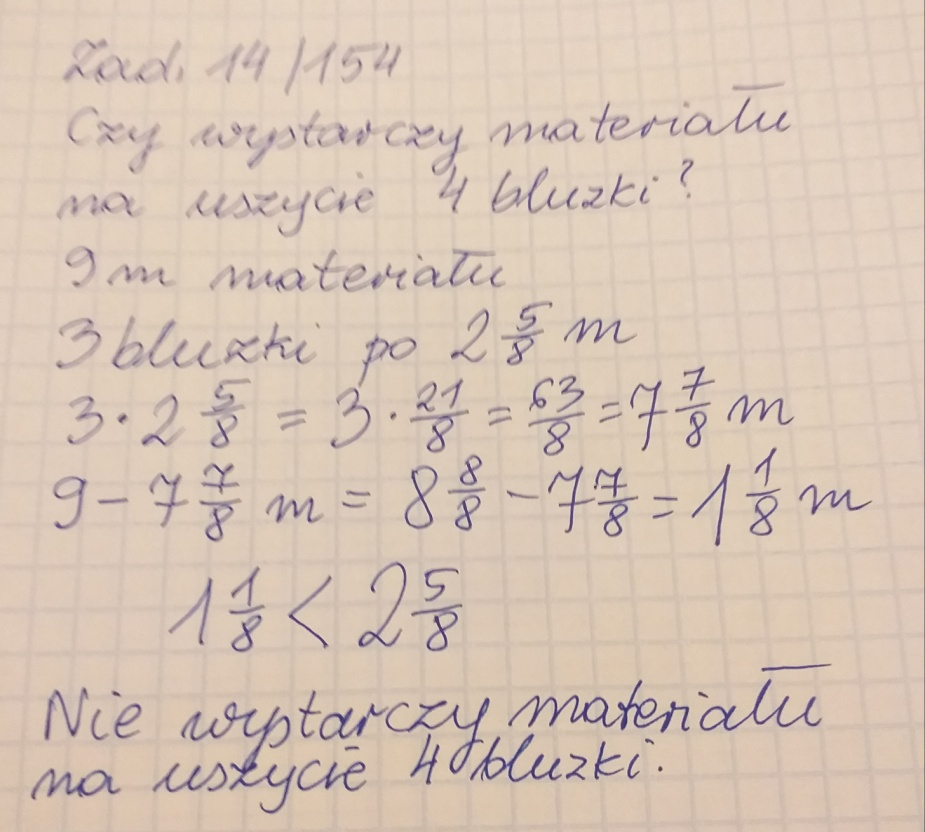 Zad. 14/154
Czy wystarczy materiału
na uszycie 4 bluzki?
9 m materiału
3 bluzki po 2 5/8 m
3 · 2 5/8 = 3 · 21/8 = 63/8 = 7 7/8 m
9 - 7 7/8 m = 8 8/8 - 7 7/8 = 1 1/8 m
1 1/8 < 2 5/8
Nie wystarczy materiału
na uszycie 4 bluzki.